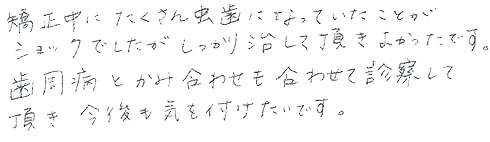 矯正中にたくさん虫歯になっていたことが
ショックでしたがしっかり治して頂きよかったです。
歯周病とかみ合わせも合わせて診察して
頂き今後も気を付けたいです。